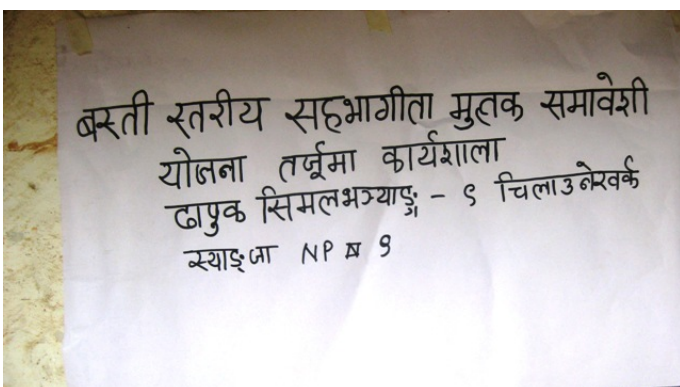 बस्ती स्तरीय सहभागीता मुलक समावेशी
योजना तर्जूमा कार्यशाला
ढापुक सिमलभञ्याङ्ग - ९ चिलाउनेखर्क
स्याङ्जा NP १